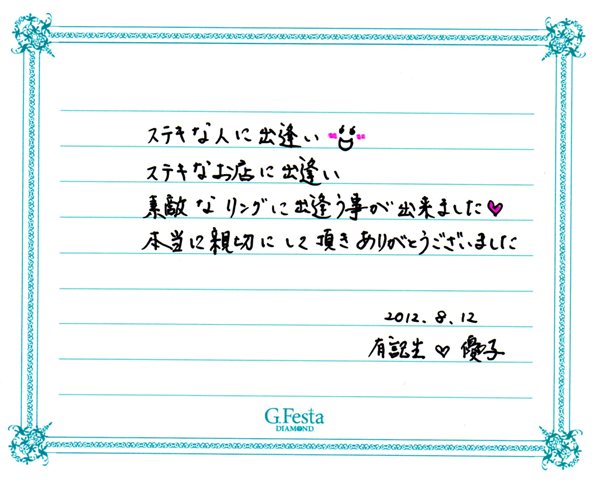 ステキな人に出逢い
ステキなお店に出逢い
素敵なリングに出逢う事が出来ました♥
本当に親切にして頂きありがとうございました
2012.8.12
有記生 ♡ 優子
G.Festa
DIAMOND